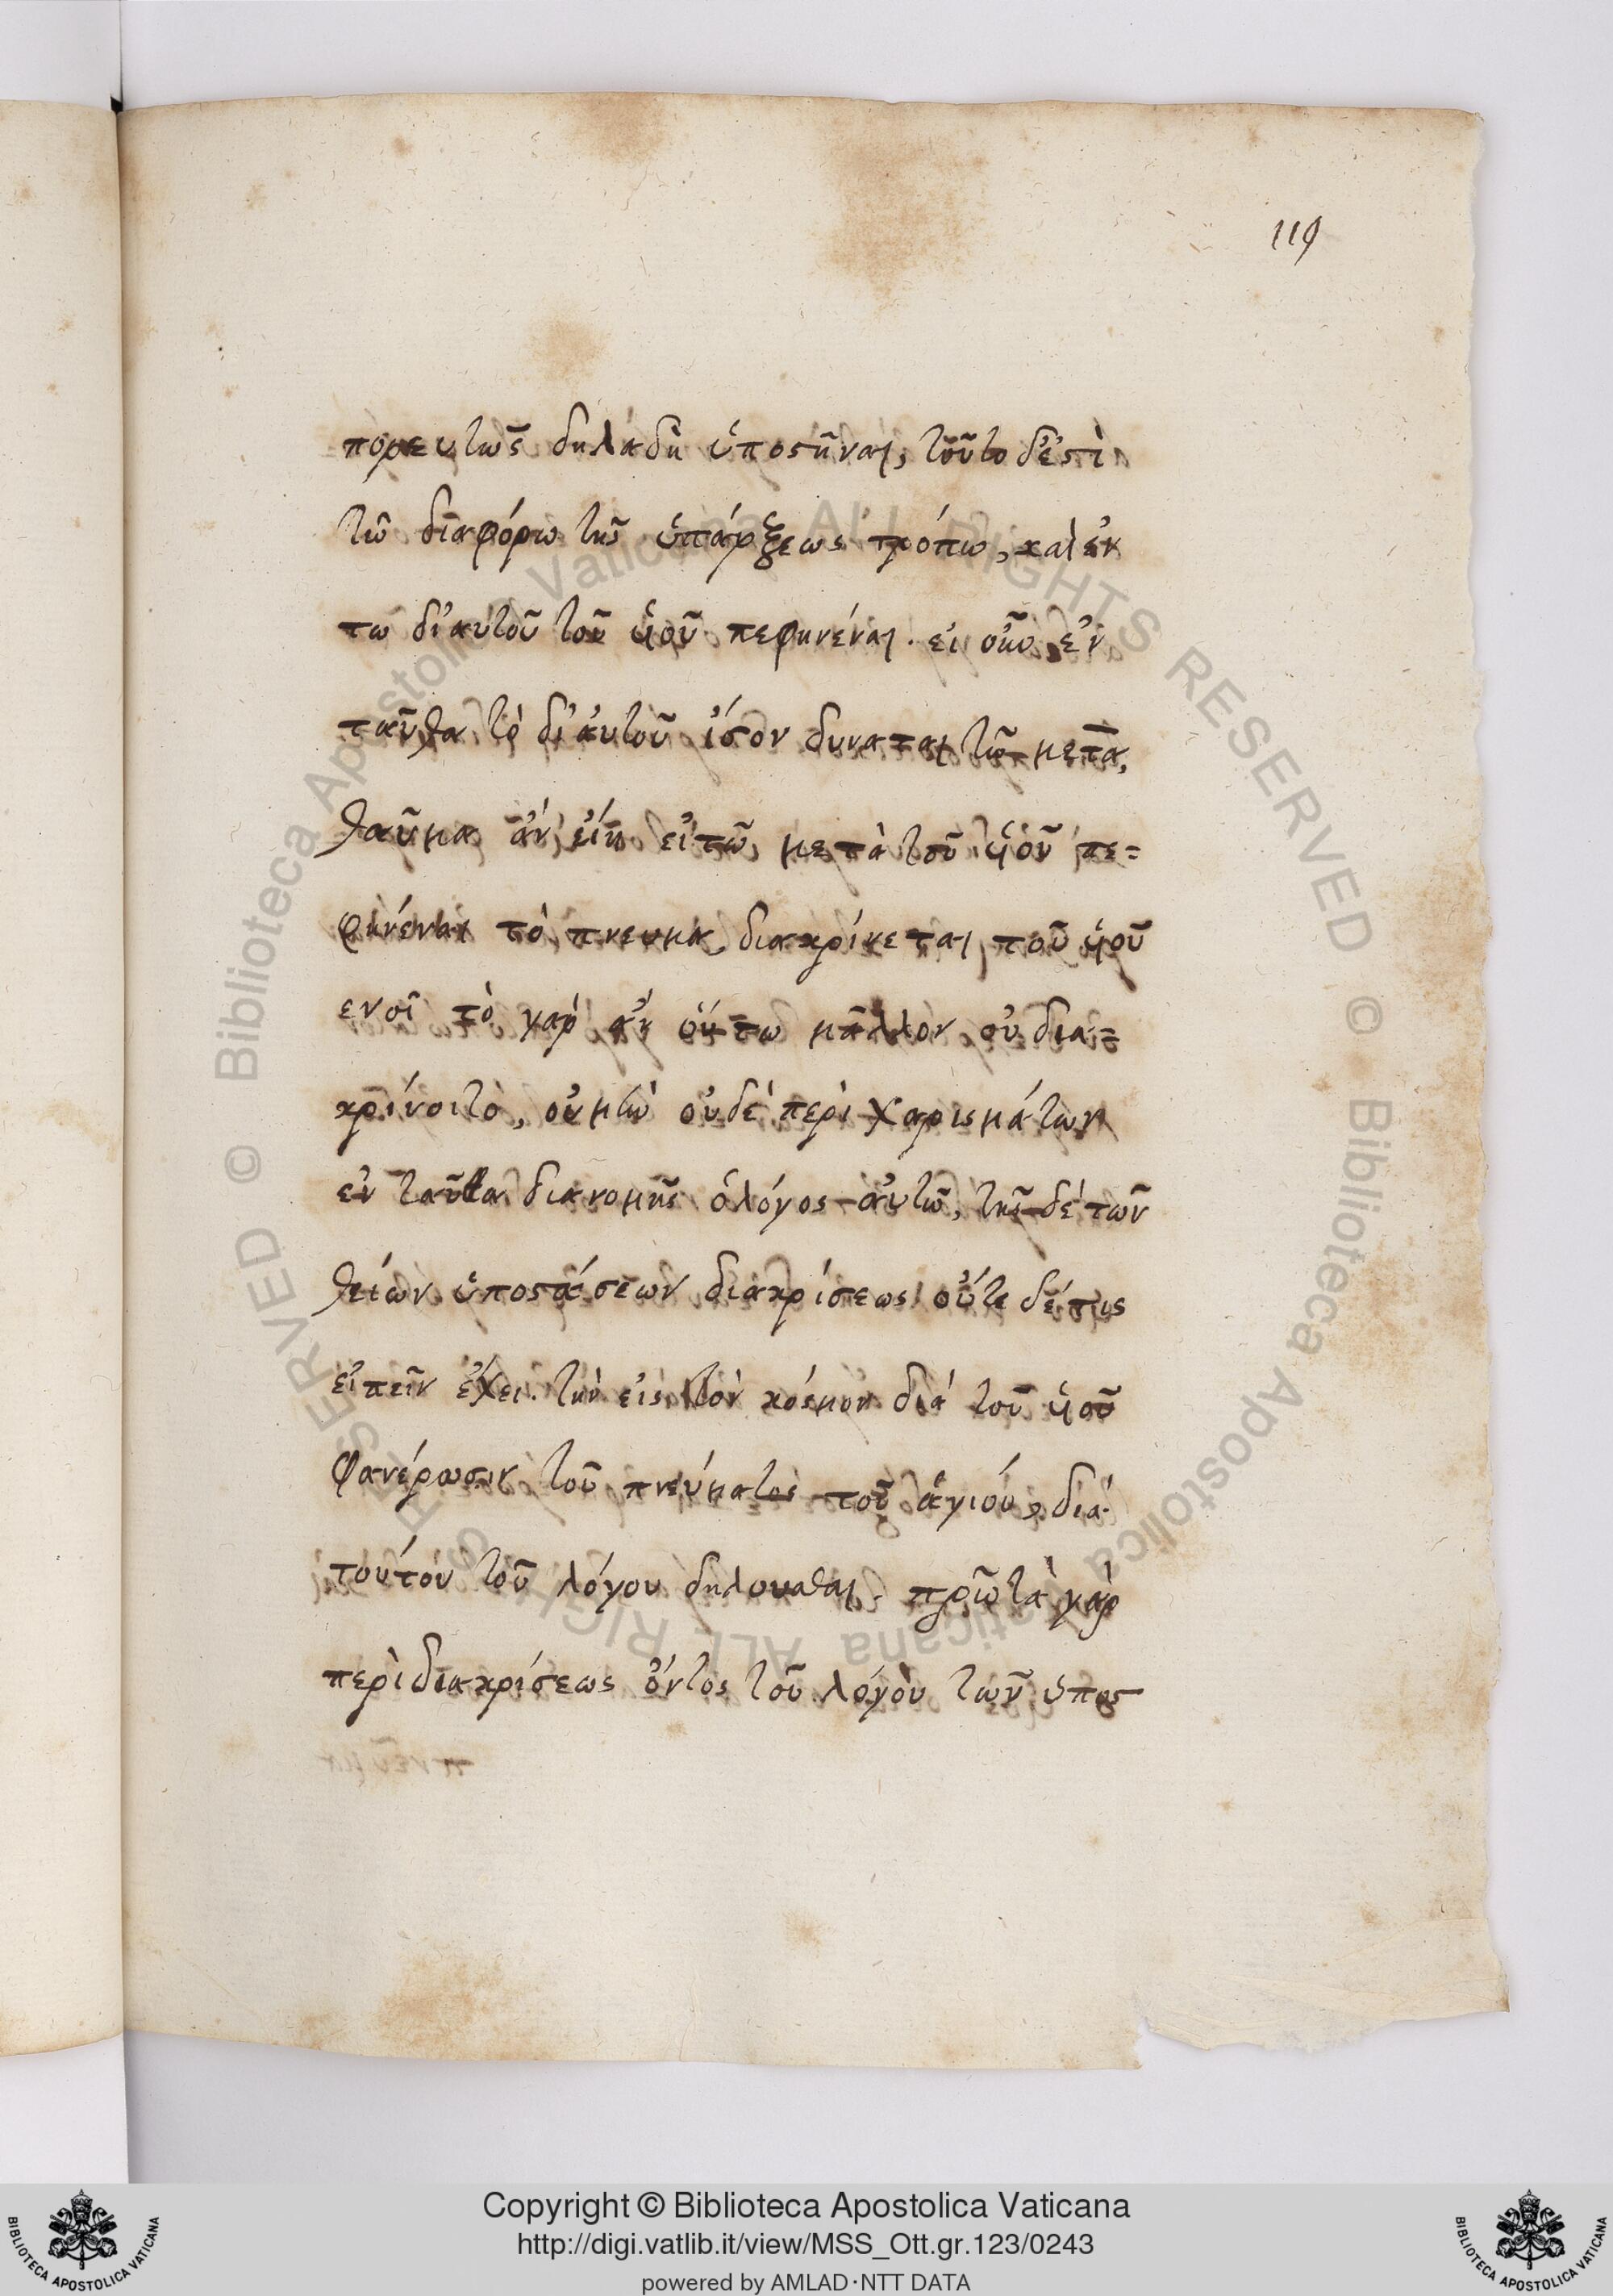 119
πορευτῶς δηλαδὴ ὑποστῆναι, τοῦτο δ' ἐστὶ
τῶ διαφόρω τῆς ὑπάρξεως τρόπω, καὶ ἐκ
τω δι' αυτοῦ τοῦ ὑιοῦ πεφηνέναι. εἰ οὖν ἐν
ταῦθα τὸ δι' ἀυτοῦ ἰσον δυναται τῶ μετα,
θαῦμα ἀν εἰη εἰ τῶ μετὰ τοῦ ὑιοῦ πε=
φηνέναι τὸ πνευμα διακρίνεται τοῦ ὑιοῦ
ενοῖ τὸ γαρ ἀν ὁύτω μᾶλλον οὐ δια=
κρίνοιτο, οὐμὴν οὐδὲ περὶ χαρισμάτων
ἐν ταῦθα διανομῆς ὁ λόγος ἀυτῶ, τῆς δὲ τῶν
θείων ὑποστάσεων διακρίσεως οὔτε δέ τις
εἰπεῖν ἔχει. τὴν εἰς τὸν κόσμον διὰ τοῦ ὑιοῦ
φανέρωσιν τοῦ πνεύματος τοῦ ἁγίου, διὰ
τουτοῦ τοῦ λόγου δηλουσθαι. πρῶτα γὰρ
περὶ διακρίσεως ὄντος τοῦ λόγου τῶν ὑπος
Copyright © Biblioteca Apostolica Vaticana
http://digi.vatlib.it/view/MSS_Ott.gr.123/0243
powered by AMLAD·NTT DATA
BIBLIOTECA APOSTOLICA VATICANA
BIBLIOTECA APOSTOLICA VATICANA
© Biblioteca Apostolica Vaticana ALL RIGHTS RESERVED © Biblioteca Apostolica Vaticana ALL RIGHTS RESERVED